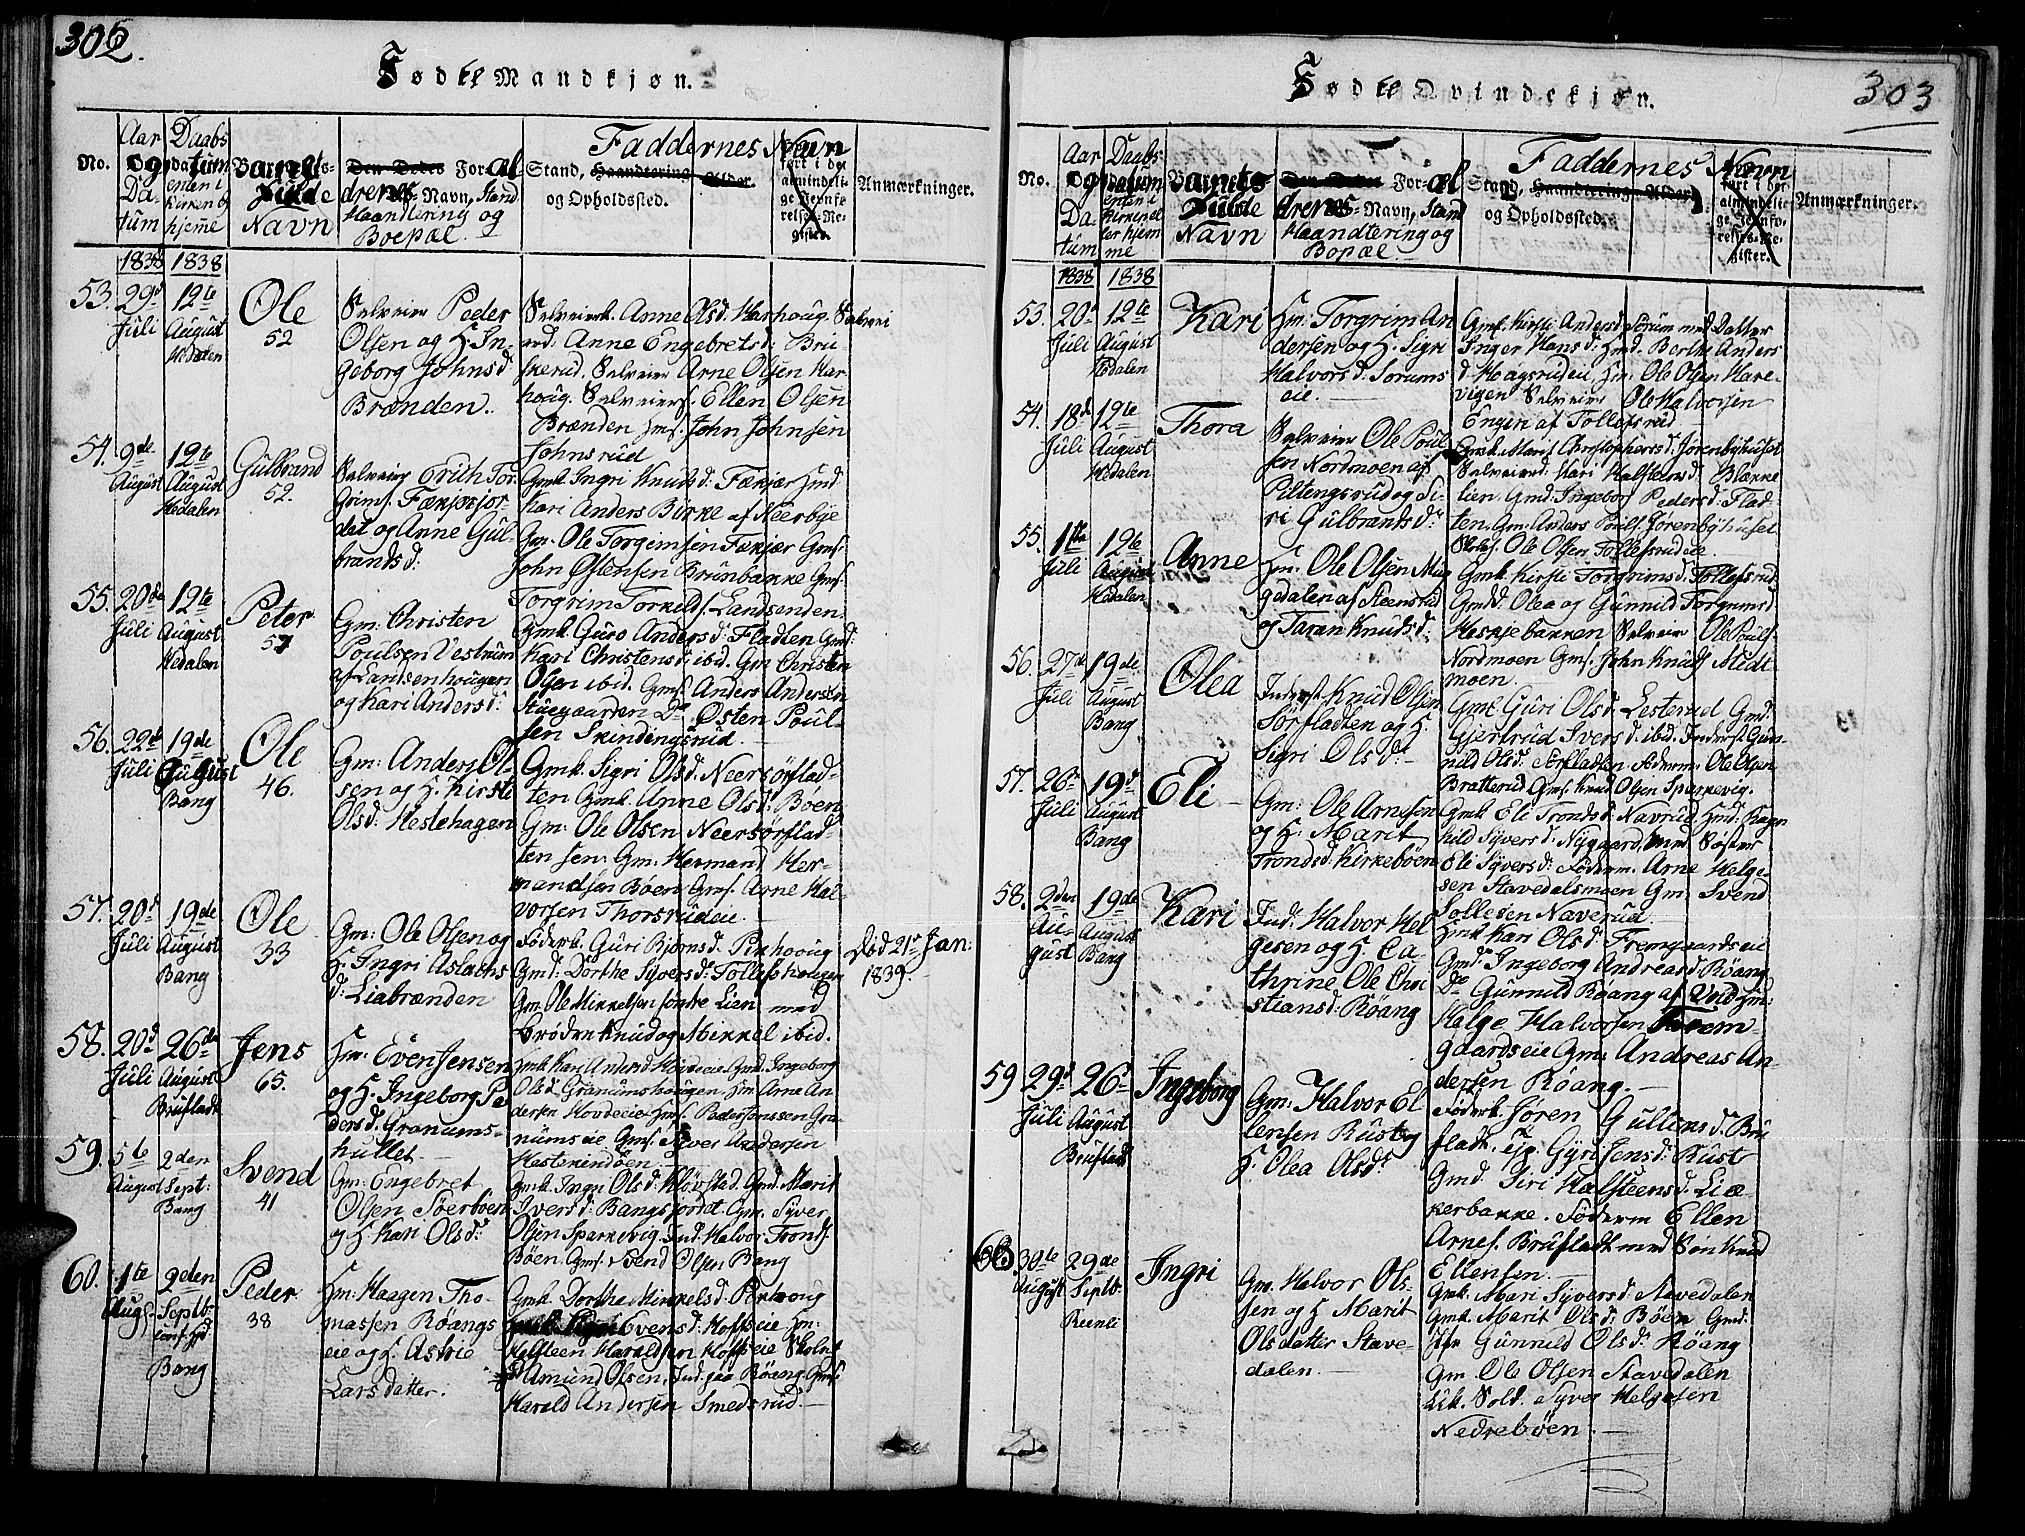 302.
Födte Mandkjøn.
No.
Aar og Datum
Daabs datum enten i Kirken eller hjeme
Barnets fulde Navn
Forældrenes Navn, Stand Haandtering og Boepæl.
Faddernes Navn
Stand, Haandtering Alder.
og Opholdssted.
Anmærkninger.
1838 1838
53. 29d Juli
12te August Hedalen
Ole 52
Selveier Peder
Olsen og H. In-
geborg Johnsd
Brænden.
Selveierk. Anne Olsd. Karhoug. Selvei
erd: Anne Engebretsd: Bru-
skerud. Selveier Arne Olsen Kar-
houg. Selveiers. Ellen Olsen
Brænden Gms. John Johnsen
Johnsrud
54. 9de August
12te August Hedalen
Gulbrand 52.
Selveier Erich Tor
grims. Fækjær
det og Anne Gul-
brandsd:
Gmk Ingri Knudsd: Fækjær Hmd
Kari Anders Birke af Neerbye
Gm. Ole Torgrimsen Fækjær Gms.
John Østensen Brunbakke Gms.
Torgrim Torkelds. Landsenden
55. 20de Juli
12te August Hedalen
Peter 57
Gm. Christen
Poulsen Vestrum
af Landsenhaugen
og Kari Andersd:
Gmk Guro Andersd: Fladten Gmd:
Kari Christensd: ibid. Gm Christen
Olsen ibid. Gms. Anders Andersen
Stuegaarden Do Østen Poul-
sen Skindingsrud.
56. 22de Juli
19de August Bang
Ole 46.
Gm: Anders Ol-
sen og H. Kirsti
Olsd: Hestehagen
Gmk. Sigri Olsd. Neersørflad-
ten Gmk. Anne Olsd: Bøen
Gm: Ole Olsen Neersørflad-
ten Gm: Hermand Her-
mandsen Bøen Gms. Arne Hal-
vorsen Thorsrudeie.
57. 20d Juli
19de August Bang
Ole 33
Gm: Ole Olsen og
H. Ingri Aslachs
d: Liabrænden
Föderk. Guri Bjørnsd: Perhoug
Gmd: Dorthe Syversd: Tollefshaugen
Gm. Ole Mikkelsen søndre Lien med
brödre Knud og Mikkel ibid.
Död 21de Jan:
1839.
58. 20d Juli
26de August Brufladt
Jens 65.
Hm: Even Jensen
og H. Ingeborg Pe
dersd. Granums-
hullet
Hmk Kari Andersd Hovdeeie Gmd. Ingeborg
Olsd. Granumshougen. Hm Arne An
dersen Hovdeeie Hms. Peder Jonssen Gra
numseie Gms. Iver Andersen
59. 5te August
2den Sept: Bang
Svend 41
Gm: Engebret
Olsen Søerbøen
og H Kari Olsd:
Gmk. Ingri Olsd. Kløvsted. Gmd. Marit
Iversd: Bangsjordet Gm. Syver
Olsen Sparkevig. Ind. Halvor Tronds.
Böen. Gms. Svend Olsen Bang
60. 1te Augs.
2den Septb: Bang
Peder 38
Hm: Haagen Tho-
massen Røangs
eie og H. Astrie
Larsdatter.
Gmk Dorthe Mikkelsd. Perhoug
Evensd: Hoffseie Hm:
Halsteen Haraldsen Hoffseie Skolel
Amund Olsen, Ind. paa Røang Gms
Harald Andersen Smedsrud.
303
Födte Qvindekjøn.
No.
Aar og Datum
Daabs datum enten i Kirken eller hjemme
Barnets fulde Navn
Forældrenes Navn, Stand Haandtering og Bopæl.
Faddernes Navn
Stand, Haandtering Alder
og Opholdssted.
Anmærkninger.
1838 1838
53. 20d Juli
12te August Hedalen
Kari
Hm: Torgrim An
dersen og H. Sigri
Halvorsd. Sorums
eie.
Gmk. Kirsti Andersd Sörum med Datter
Inger Hansd: Hmd. Berthe Anders
d. Haagsrudeie, Hm: Ole Olsen Kare-
vigen Selveier Ole Halvorsen
Engeri af Tollefsrud
54. 18d Juli
12te August Hedalen
Thora
Selveier Ole Poul-
sen Nordmoen af
Piltengsrud og Si-
ri Gulbrandsd:
Gmk. Marit Christophersd: Jörenbyhuset
Selveierd. Kari Halsteensd: Blække
lien. Gmd: Ingeborg Pedersd: Flad-
ten. Gm: Anders Pouls. Jørenbyhuset
Ole Olsen Tollefsrudeie
55. 1ste Juli
12te August Hedalen
Anne
Hm: Ole Olsen Mug
gedalen af Steensrud
og Taran Knudsd:
Gmk. Kirsti Torgrimsd: Tollefsrud
Gmdd: Olea og Gunnild Torgrimsd
Heskjebakken Selveier Ole Pouls.
Nordmoen Gms. John Knuds Midt
moen.
56. 27d Juli
19de August Bang
Olea
Inderst Knud Olsen
Sörfladten og H.
Sigri Olsd:
Gmk Guri Olsd. Lesterud Gmd.
Gjertrud Iversd. ibid. Inderst. Gun-
nild Olsd: Sørfladten Föderm. Ole Olsen
Bratterud Gms. Knud Olsen Sparkevig.
57. 26d Juli
19d August Bang
Eli
Gm: Ole Arnesen
og H: Marit
Trondsd. Kirkebøen
Gmk Eli Trondsd: Navrud. Hmd: Ragn
hild Syversd: Nygaard, med Søster
Eli Syversd: Föderm. Arne Helge-
sen Stavedalsmoen Gm: Svend
Tollefsen Naverud.
58. 2den August
19de August Bang
Kari
Ind: Halvor Hel
gesen og H. Ca-
thrine Ole Chri
stiansd: Röang
Hmk Kari Olsd: Fremgaardseie
Gmd: Ingeborg Andreasd. Röang
Do Gunnild Røang af Vold Hm:
Helge Halvorsen Frem-
gaardseie Gm: Andreas An-
dersen Röang.
59 29d Juli
26d August Brufladt
Ingeborg
Gm: Halvor El
lensen Rust og
H. Olea Olsd:
Föderk. Jören Gullensd: Bru
fladt. Gyri Jensd: Rust
Gmd. Siri Halsteensd. Liæ-
kerbakke. Föderm Ellen
Arnes. Brufladt med Søn Knud
Ellensen.
60. 30te August
29de Septb: Reenli
Ingri
Gm Halvor Ols-
sen og H Marit
Olsdatter Stave-
dalen
Gmk. Mari Syversd Stavedalen
Gmk. Marit Olsd: Böen Gmd:
Gunnild Olsd: Röang
Gm Ole Olsen Stavedalen
Sold. Syver Helgesen
Nedrebøen.